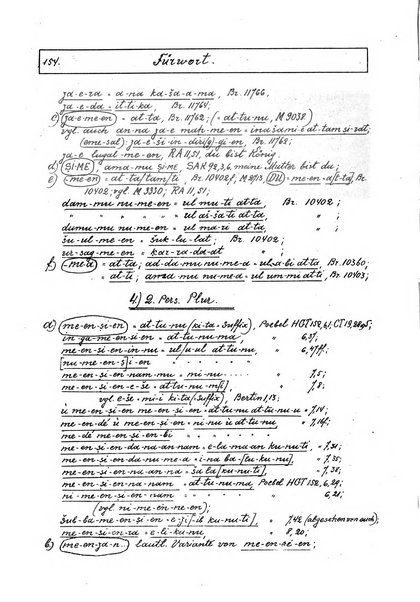 154. Fürwort.
za-e-ra = a-na ka-ša-a-ma, Br. 11766.
za-e-da = it-ti-ka, Br. 11764.
c) za-e-me-en = at-ta, Br. 11762; (= at-tu-nu, M 9038)
vgl. auch an-na za-e mah-me-en = ina šami-é at-tam ṣi-rat;
(eme-sal) za-e-ši-in-dirig-gi-en, Br. 11762;
za-e lugal-me-en, RA 11,51, du bist König.
d) ŠI.ME ama-mu ŠI.ME SAK 92,3,6, meine Mutter bist du;
e) me-en = at-ta/tam/ti, Br. 10402 f, M 2713, DU = me-en-a[t-ta], Br.
10402; vgl. M 3330; RA 11,51;
dam-mu nu-me-en = ul mu-ti at-ta Br. 10402;
" " " " = ul aš-ša-ti at-ta, " ;
dumu-mu nu-me-en = ul ma-ri at-ta, " ;
šu-ul-me-en = šuk-lu-lat; Br. 10402;
ur-sag-me-en = kar-ra-da-at " ;
f) -me-ti = at-ta; ad-da-mu nu-me-a = ul a-bi at-ta, Br. 10360;
= at-ti; ama-mu nu-me-a = ul um-mi at-ti, Br. 10403;
4) 2. Pers. Plur.
a) me-en-ṣi-en = at-tu-nu (ki-ta = Suffix), Poebel HGT 152,
in-ga-me-en-ṣi-en = at-tu-nu-ma, " 6,3f;
me-en-ṣi-en-in-nu = ul/u-ul at-tu-nu, " 6,4ff;
nu-me-en-ṣi-en
me-en-ṣi-en-nam-mu = mi-nu " 7,5;
me-en-ṣi-en-e-še = at-tu-nu-mi[, " 7,8;
vgl. e-še = mi-i ki-ta (= Suffix), Bertin 1,13;
ù me-en-ṣi-en me-en-ṣi-en = at-tu-nu at-tu-nu " 7,14;
me-en-dé ù me-en-ṣi-en = ni-nu ù at-tu-nu " 7,14f;
me-dé me-en-ṣi-en-bi
me-en-ṣi-en-da-na-an-nam = e-la-ma-an ku-nu-ti, " 7,31;
me-en-ṣi-en-da-nu-me-a = i-na ba-[lu-ku-nu], " 7,35;
me-en-ṣi-en-na-an-na = ša la [ku-nu-ti], " 7,38;
me-en-ṣi-en-nam = at-tu-nu-ma Poebel HGT 152, 6,29;
ni-me-en-ṣi-en-nam " 6,21;
(vgl. ni-me-en-ne-en);
šub-ba-me-en-ṣi-en = e-zi-[-ib ku-nu-ti], " 7,42 (abgesehen von euch);
me-en-ṣi-en-ra = e-li-ku-nu, " 8,20;
b) me-en-za-n.. lautl. Variante von me-en-ṣi-en;